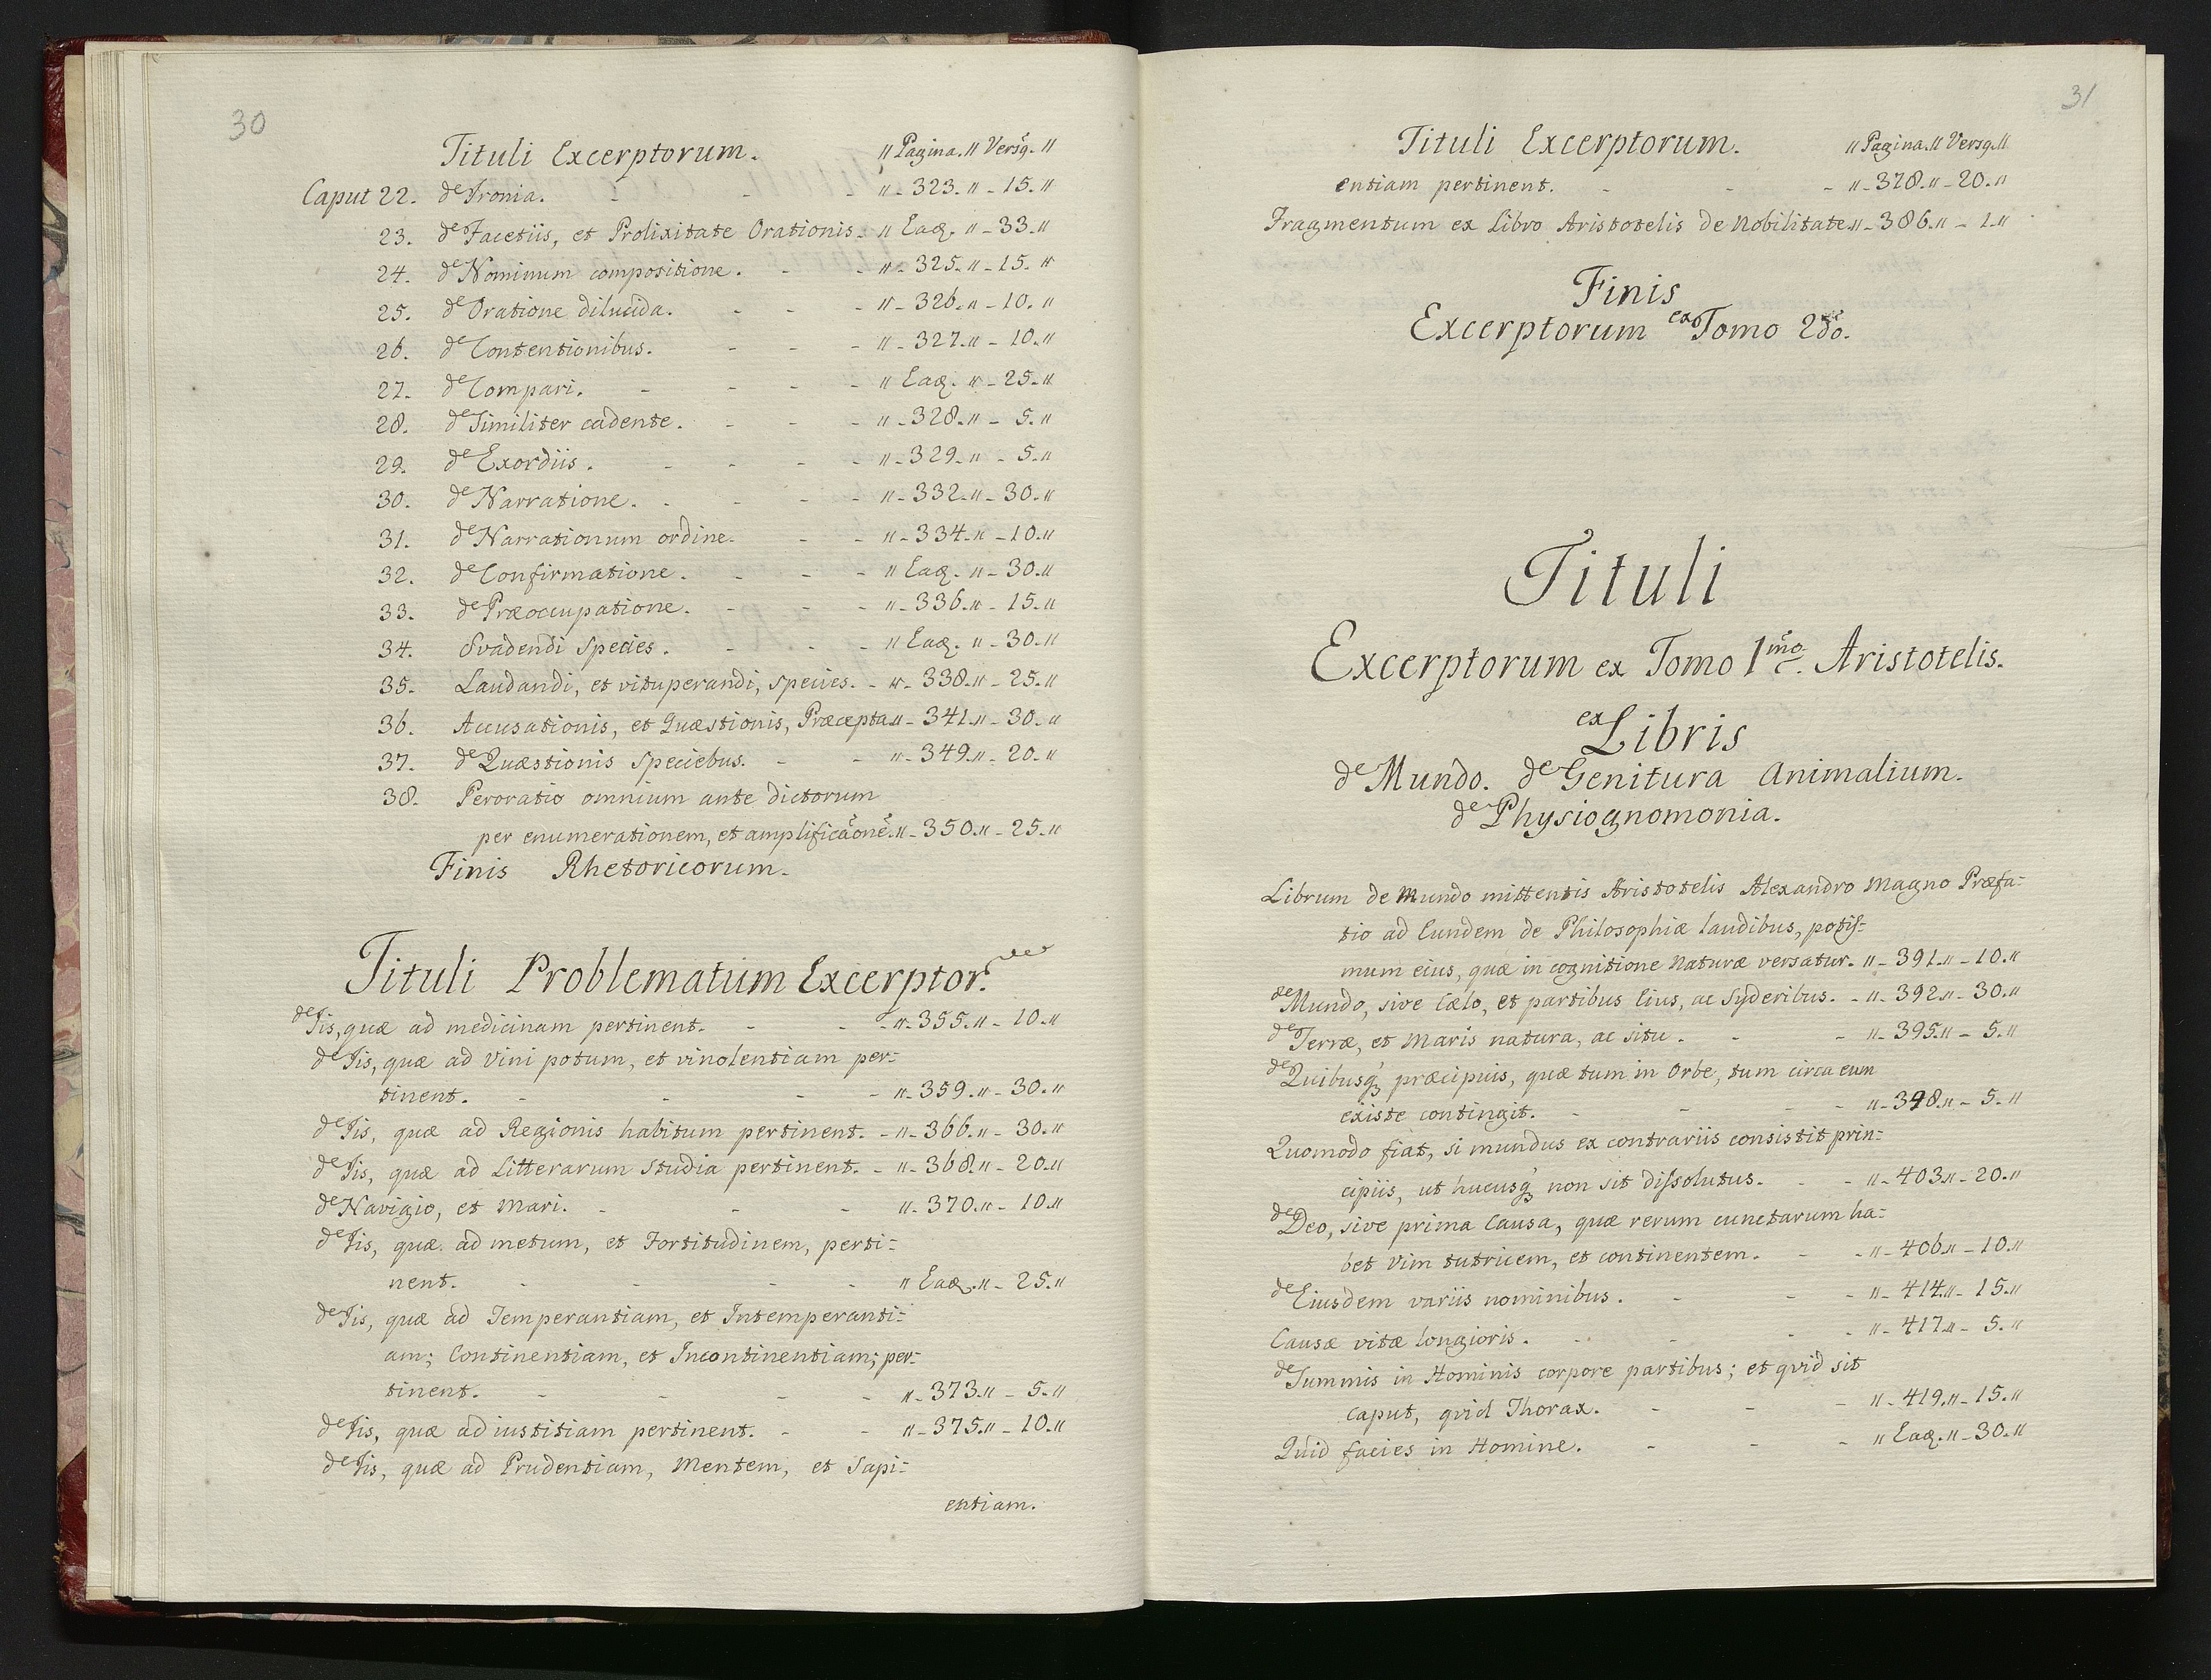 30
Tituli Excerptorum. " Pagina. " Versq. "
Caput 22. de Ironia. - - - "- 323. "- 15. "
23. de Facetiis, et Prolixitate Orationis. " Eaq. "- 33. "
24. de Nominum compositione. - - "- 325. "- 15. "
25. de Oratione dilucida. - - - "- 326. "- 10. "
26. de Contentionibus. - - - "- 327. "- 10. "
27. de Compari. - - - - " Eaq. "- 25. "
28. de Similiter cadente. - - - "- 328. "- 5. "
29. de Exordiis. - - - - "- 329. "- 5. "
30. de Narratione. - - - - "- 332. "- 30. "
31. de Narrationum ordine. - - "- 334. "- 10. "
32. de Confirmatione. - - - " Eaq. "- 30. "
33. de Præoccupatione. - - - "- 336. "- 15. "
34. Svadendi species. - - - " Eaq. "- 30. "
35. Laudandi, et vituperandi, species. - "- 338. "- 25. "
36. Accusationis, et Quæstionis, Præcepta. "- 341. "- 30. "
37. de Quæstionis speciebus. - - "- 349. "- 20. "
38. Peroratio omnium ante dictorum
per enumerationem, et amplificaone. "- 350. "- 25. "
Finis Rhetoricorum.
Tituli Problematum Excerptor.
de Iis, quæ ad medicinam pertinent. - - - "- 355. "- 10. "
de Iis, quæ ad Vini potum, et vinolentiam per=
tinent. - - - - "- 359. "- 30. "
de Iis, quæ ad Regionis habitum pertinent. - "- 366. "- 30. "
de Iis, quæ ad Litterarum studia pertinent. - "- 368. "- 20. "
de Navigio, et Mari. - - - "- 370. "- 10. "
de Iis, quæ ad metum, et Fortitudinem, perti=
nent. - - - - " Eaq. "- 25. "
de Iis, quæ ad Temperantiam, et Intemperanti=
am; Continentiam, et Incontinentiam; per=
tinent. - - - - "- 373. "- 5. "
de Iis, quæ ad iustitiam pertinent. - - "- 375. "- 10. "
de Iis, quæ ad Prudentiam, Mentem, et Sapi=
entiam.
31
Tituli Excerptorum. " Pagina. " Versq. "
entiam pertinent. - - - "- 378. "- 20. "
Fragmentum ex Libro Aristotelis de Nobilitate. "- 386. "- 1. "
Finis
Excerptorum ex Tomo 2do.
Tituli
Excerptorum ex Tomo 1mo. Aristotelis.
ex Libris
de Mundo. de Genitura Animalium.
de Physiognomonia.
Librum de Mundo mittentis Aristotelis Alexandro Magno Præfa=
tio ad Eundem de Philosophiæ laudibus, potis=
mum eius, quæ in cognitione Naturæ versatur. "- 391. "- 10. "
de Mundo, sive Cælo, et partibus Eius, ac Syderibus. - "- 392. "- 30. "
de Terræ, et Maris natura, ac situ. - - "- 395. "- 5. "
de Quibusq præcipuis, quæ tum in Orbe, tum circa eum
existe contingit. - - - "- 398. "- 5. "
Quomodo fiat, si mundus ex contrariis consistit prin=
cipiis, ut hucusq non sit dissolutus. - - "- 403. "- 20. "
de Deo, sive prima Causa, quæ rerum cunctarum ha=
bet vim tutricem, et continentem. - - "- 406. "- 10. "
de Eiusdem variis nominibus. - - - "- 414. "- 15. "
Causæ vitæ longioris. - - - - "- 417. "- 5. "
de Summis in Hominis corpore partibus; et qvid sit
Caput, qvid Thorax. - - - "- 419. "- 15. "
Quid facies in Homine. - - - " Eaq. "- 30. "